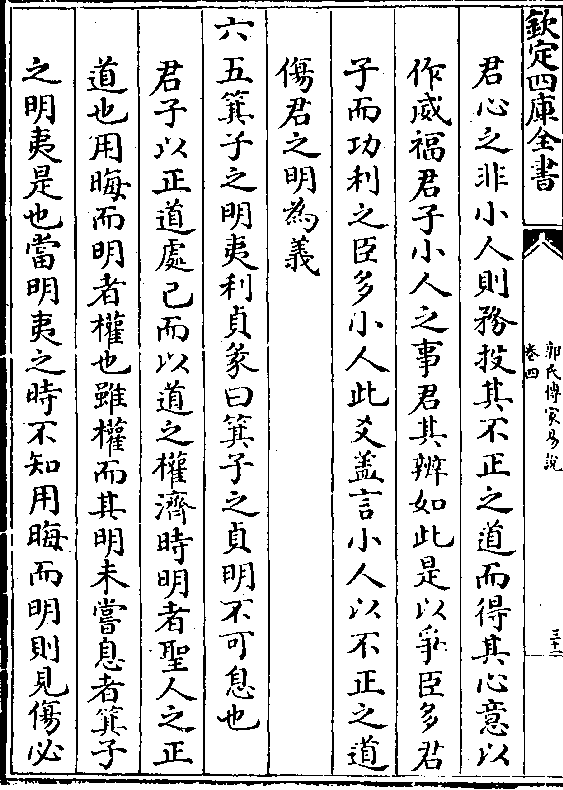 欽定四庫全書
郭氏傳家易說
卷四
三十二
君心之非小人則務投其不正之道而得其心意以
作威福君子小人之事君其辨如此是以爭臣多君
子而功利之臣多小人此爻蓋言小人以不正之道
傷君之明為義
六五箕子之明夷利貞象曰箕子之貞明不可息也
君子以正道處己而以道之權濟時明者聖人之正
道也用晦而明者權也雖權而其明未嘗息者箕子
之明夷是也當明夷之時不知用晦而明則見傷必